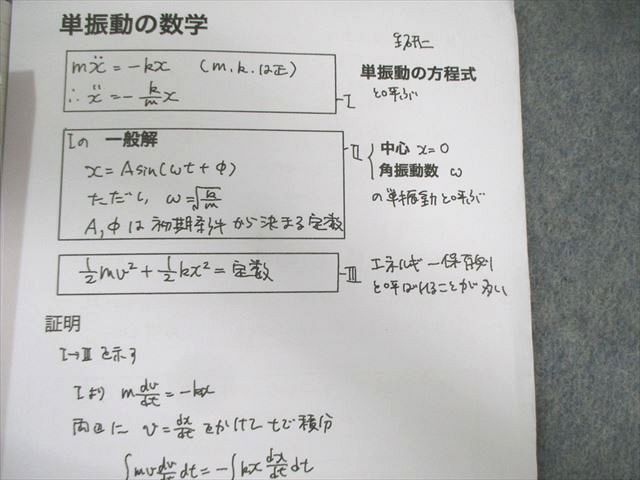 単振動の数学
mẍ = -kx (m, k は正)
∴ ẍ = -k/m x
I
単振動の方程式
と呼ぶ
Iの 一般解
x = A sin(ωt + φ)
ただし, ω = √(k/m)
A, φは初期条件から決まる定数
II
中心 x=0
角振動数 ω
の単振動と呼ぶ
1/2 mv² + 1/2 kx² = 定数
III
エネルギー保存則
と呼ばれることが多い
証明
I→IIIを示す
Iより m dv/dt = -kx
両辺に v = dx/dt をかけて tで積分
∫ mv dv/dt dt = -∫ kx dx/dt dt